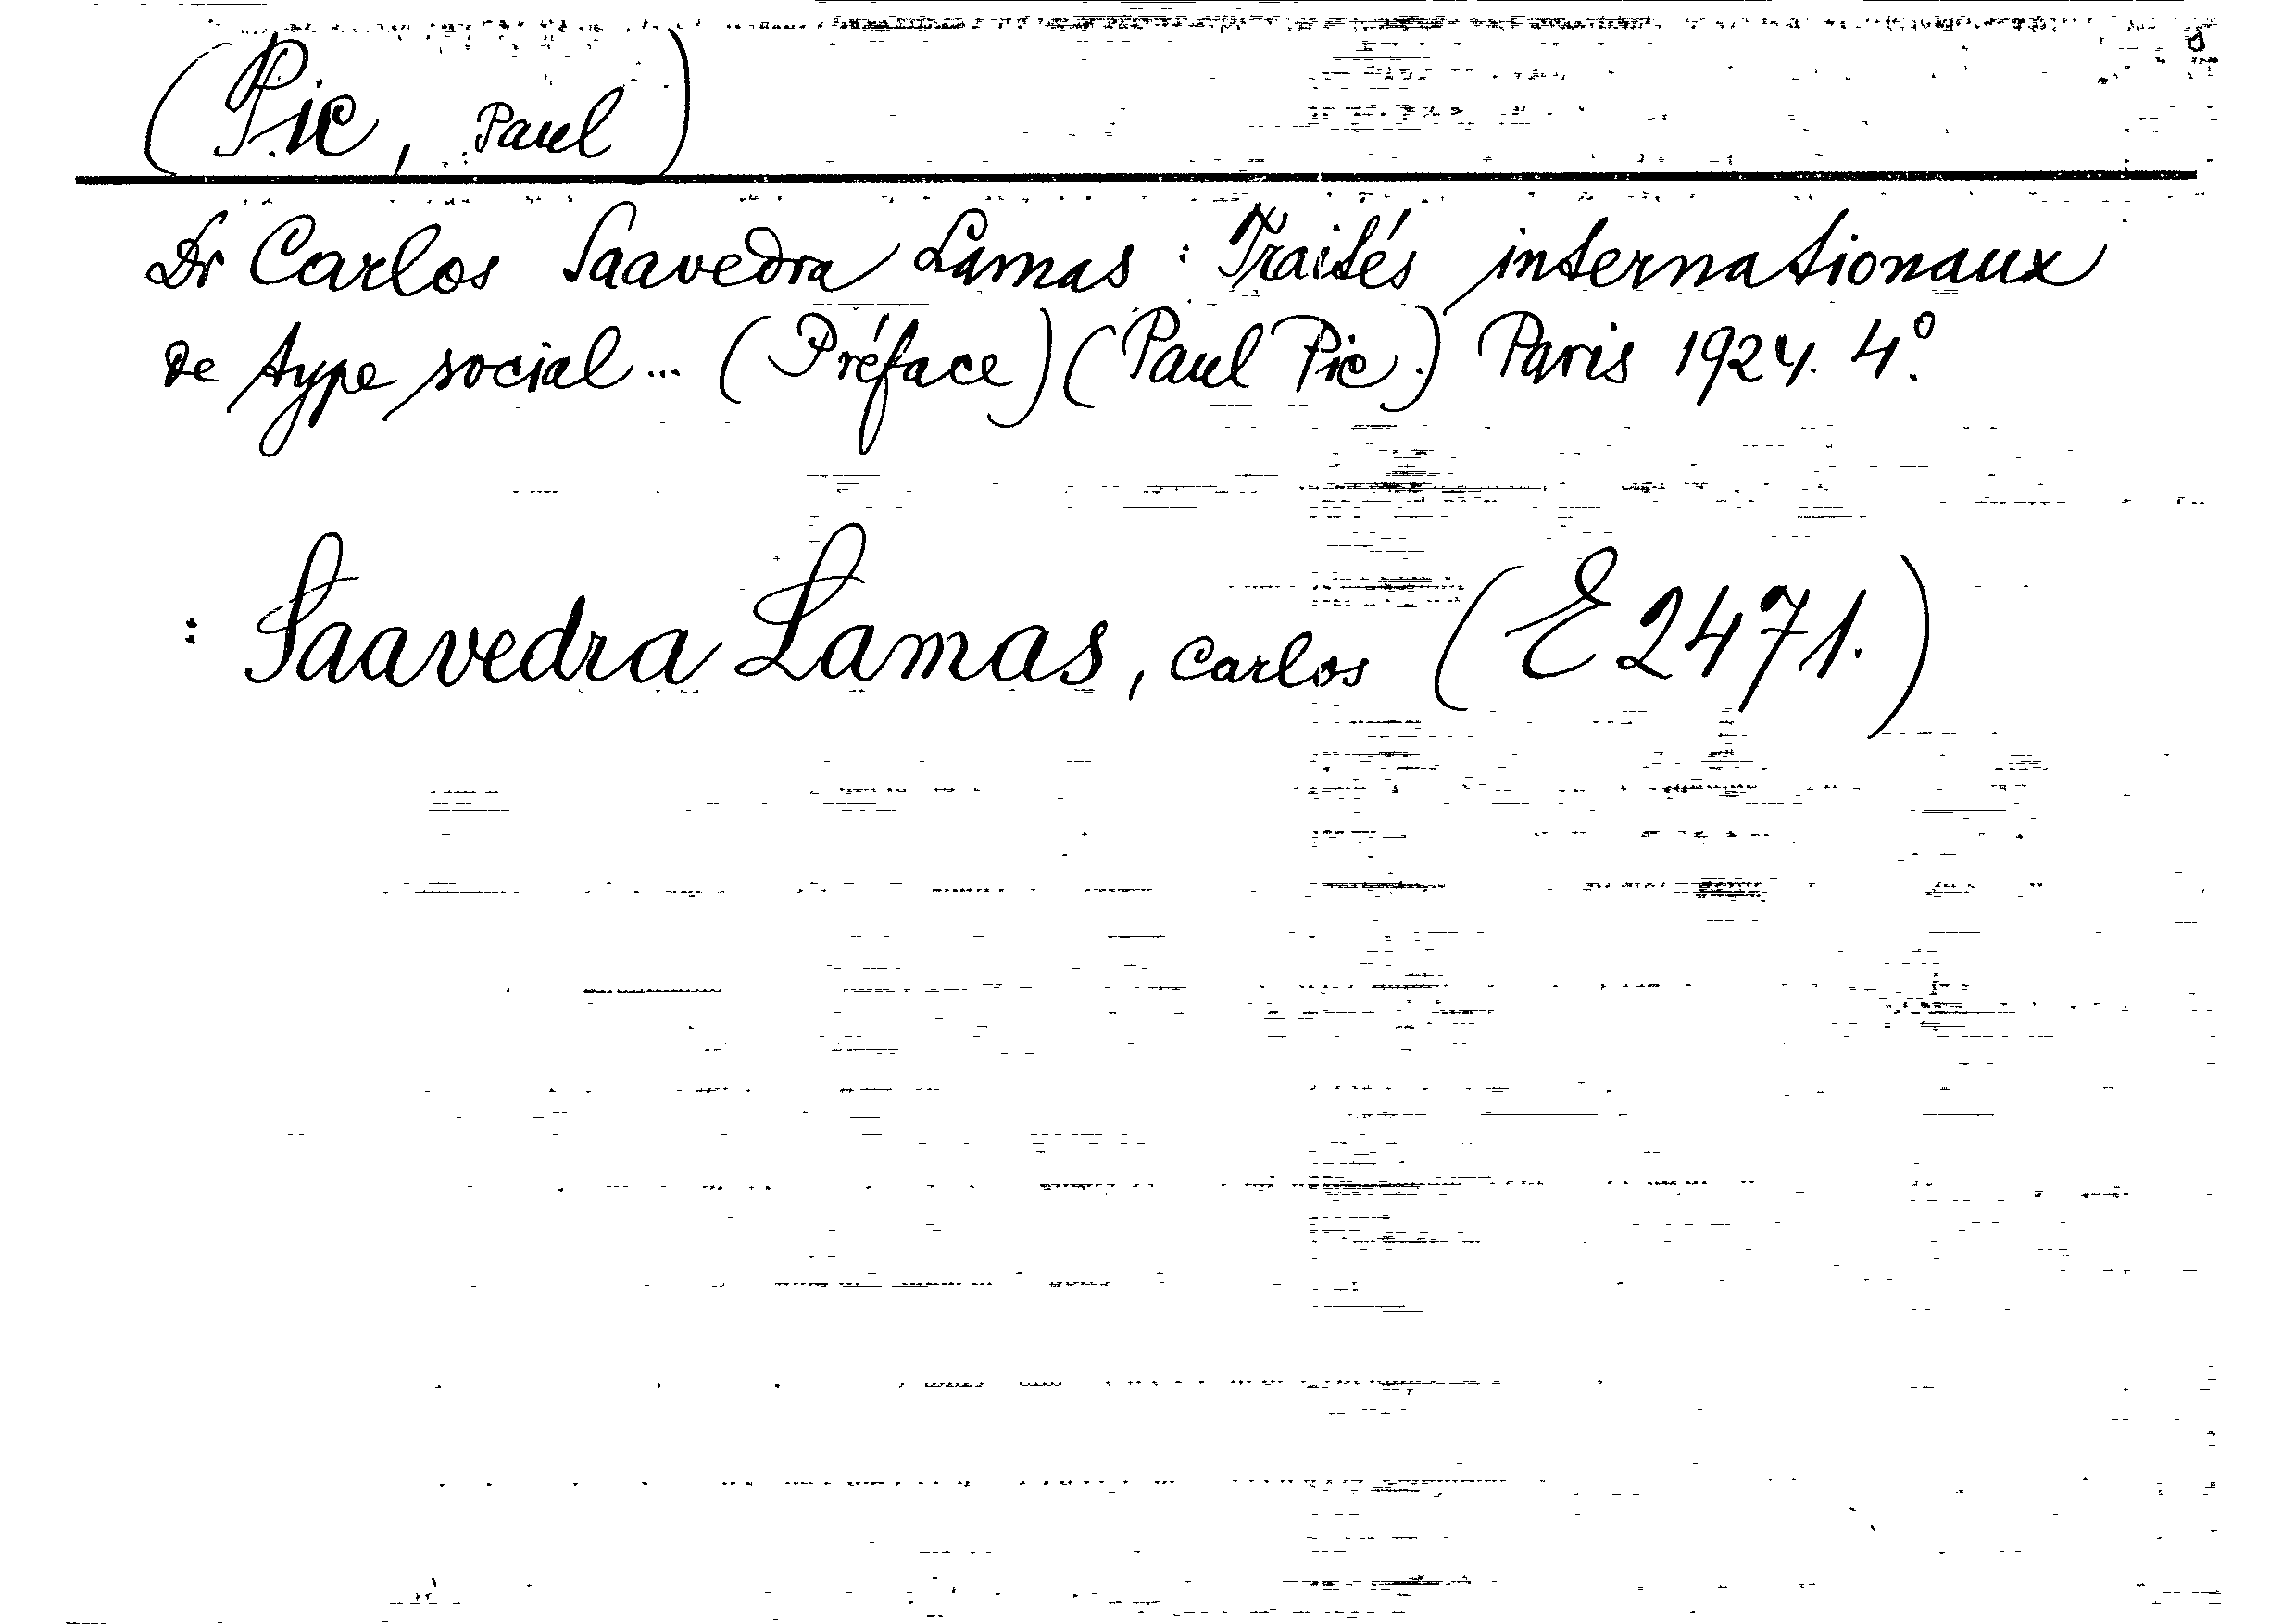 (Pic, Paul)
Dr Carlos Saavedra Lamas : Traités internationaux
de type social... (Préface) (Paul Pic.) Paris 1924. 4°.
: Saavedra Lamas, Carlos (E 2471.)